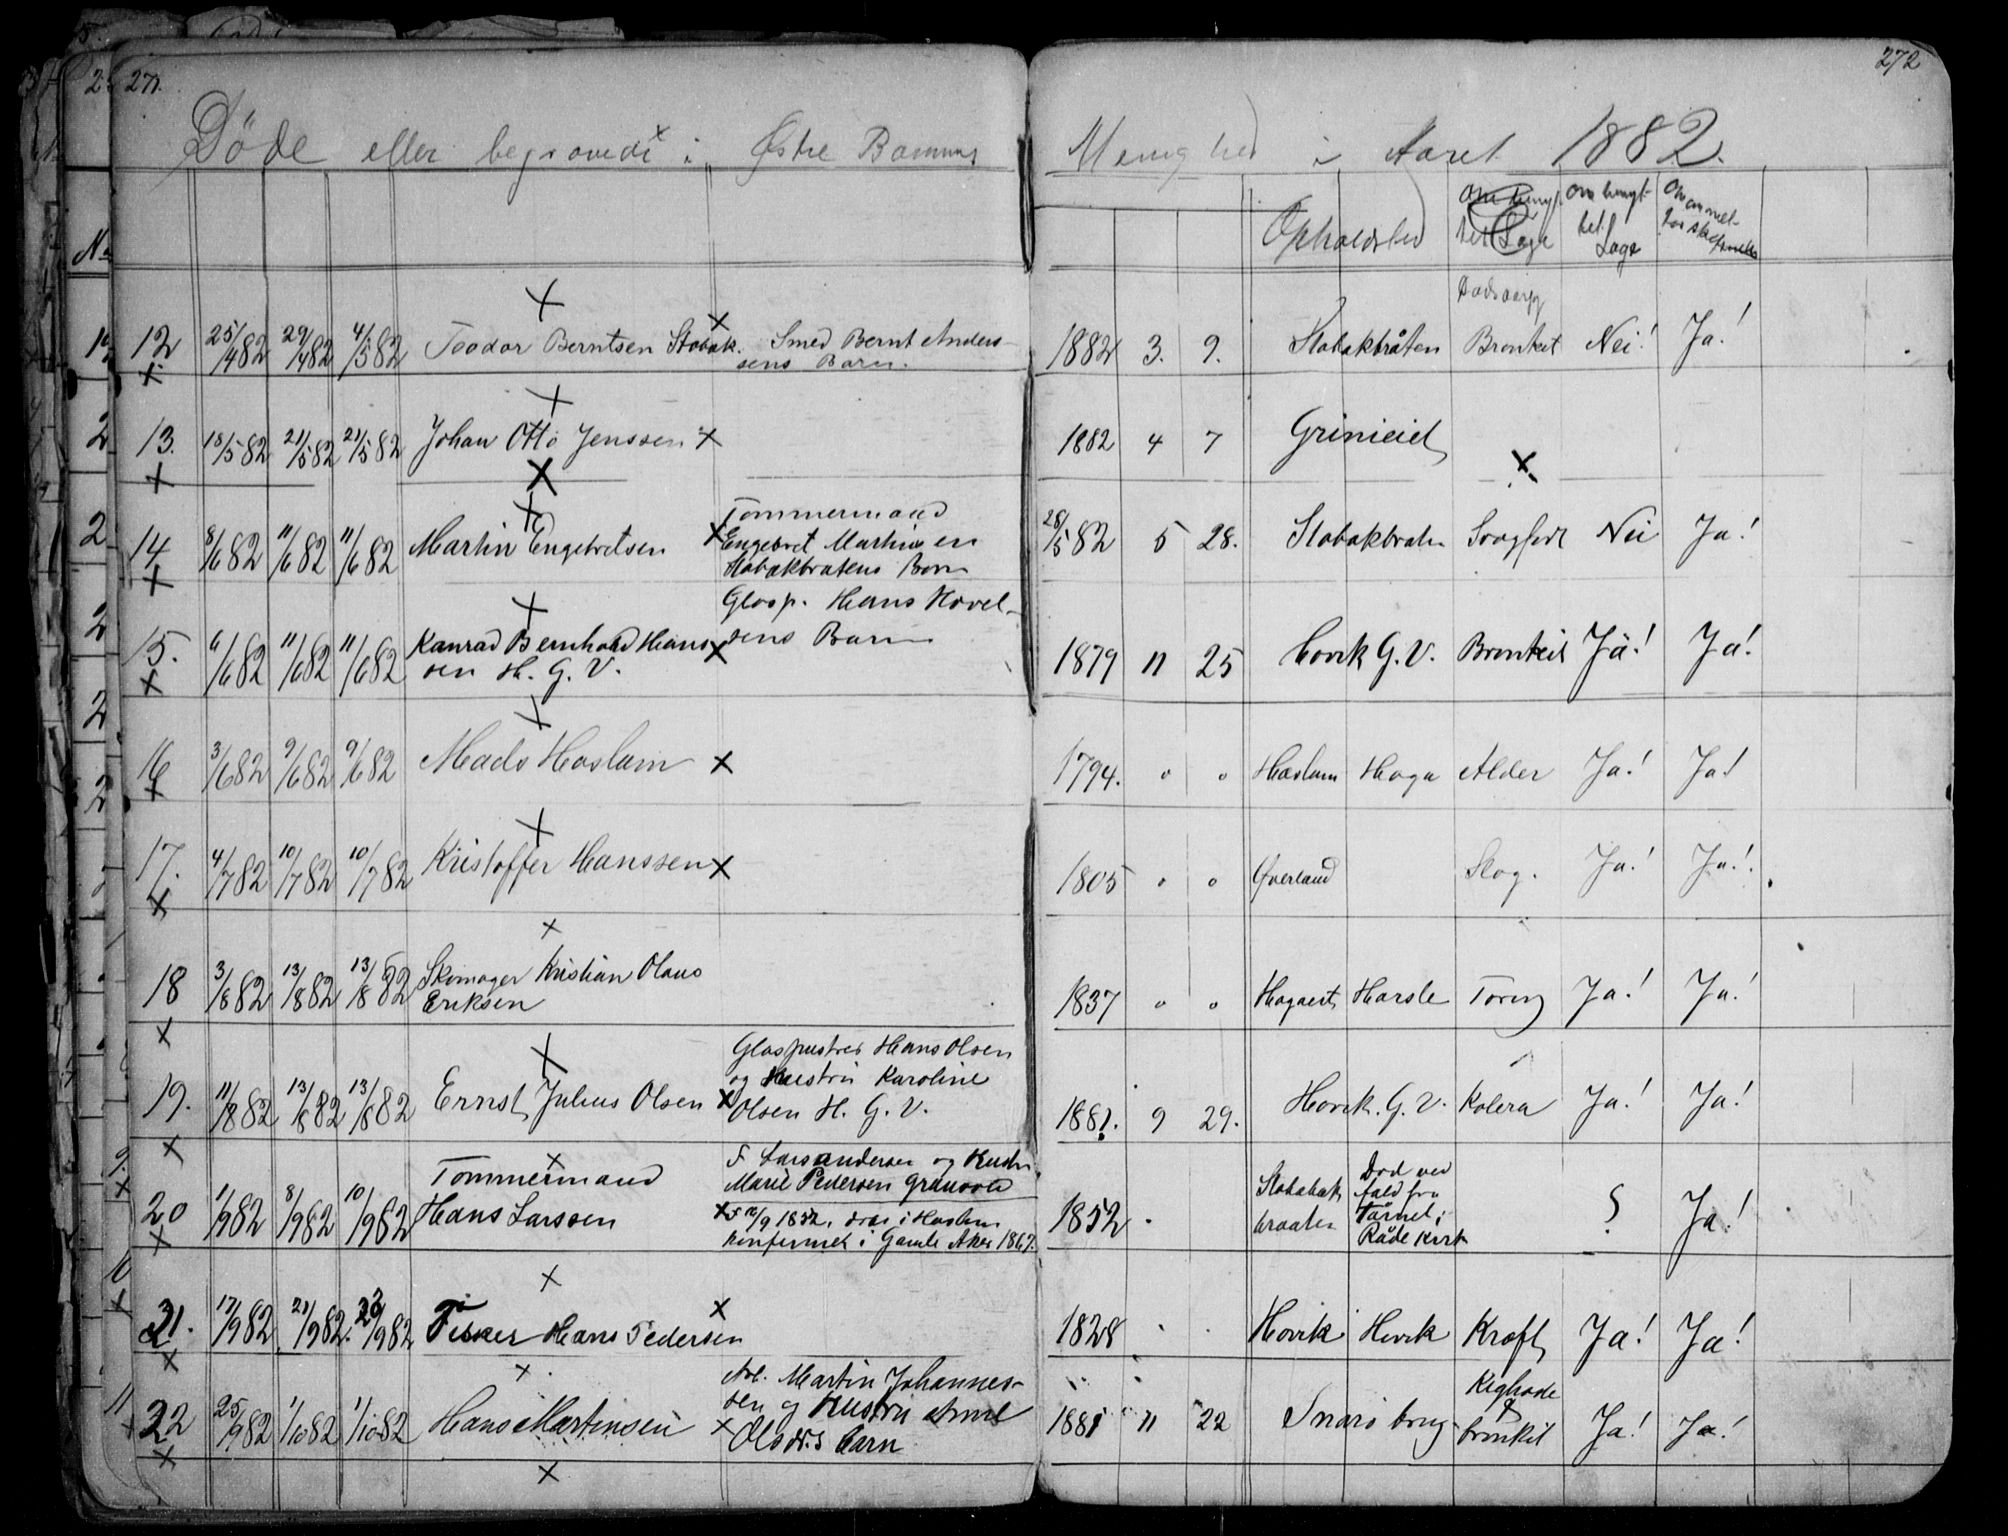 271.
272
Døde eller begravede i Østre Bærums Menighed i Aaret 1882.
No
Opholdsted
Om
Lage
Dødsaarsag
12 25/4 82 29/4 82 4/5 82 Teodor Berntsen Stabæk. Smed Bernt Anders-
sens Barn.
1882 3. 9. Stabækbråten Bronkit Nei! Ja!
13. 18/5 82 21/5 82 21/5 82 Johan Otto Jenssen
1882 4 7 Grinieiet
14 8/6 82 11/6 82 11/6 82 Martin Engebretsen
Tømmermand
Engebret Martinsen
Stabækbråtens Barn
28/5 82 5 28. Stabækbraten Nei Ja!
15. 6/6 82 11/6 82 11/6 82 Konrad Bernhard Hans
sen H. G. V.
Glasp. Hans Hovel-
sens Barn
1879 11 25 Hovik G. V. Bronkit Ja! Ja!
16 3/6 82 9/6 82 9/6 82 Mads Haslum
1794. " " Haslum Haga Alder Ja! Ja!
17. 4/7 82 10/7 82 10/7 82 Kristoffer Hanssen
1805 " " Øverland Slag. Ja! Ja!
18 3/8 82 13/8 82 13/8 82 Skomager Kristian Olaus
Eriksen
1837 " " Hagaeiet Harsle Tæring Ja! Ja!
19. 11/8 82 13/8 82 13/8 82 Ernst Julius Olsen
Glaspuster Hans Olsen
og Hustru Karoline
Olsen H. G. V.
1881. 9 29. Hovik. G. V. Kolera Ja! Ja!
20 1/9 82 8/9 82 10/9 82 Tømmermand
Hans Larssen
F Lars Andersen og Hustru
Marie Pedersen
/9 1852. i Haslum
konfirmet i Gamle Aker 1867.
1852 Stabæk
braaten
Død ved
fald fra
Tårnet i
Råde Kirk
? Ja!
21. 17/9 82 21/9 82. 23/9 82 Fisker Hans Pedersen
1828 Hovik Hovik Kræft Ja! Ja!
22 25/9 82 1/10 82 1/10 82 Hans Martinsen
Arb. Martin Johannes-
sen og Hustru
Olsdrs barn
1881 11 22 Snarø brug Kighoste
bronkit Ja! Ja!